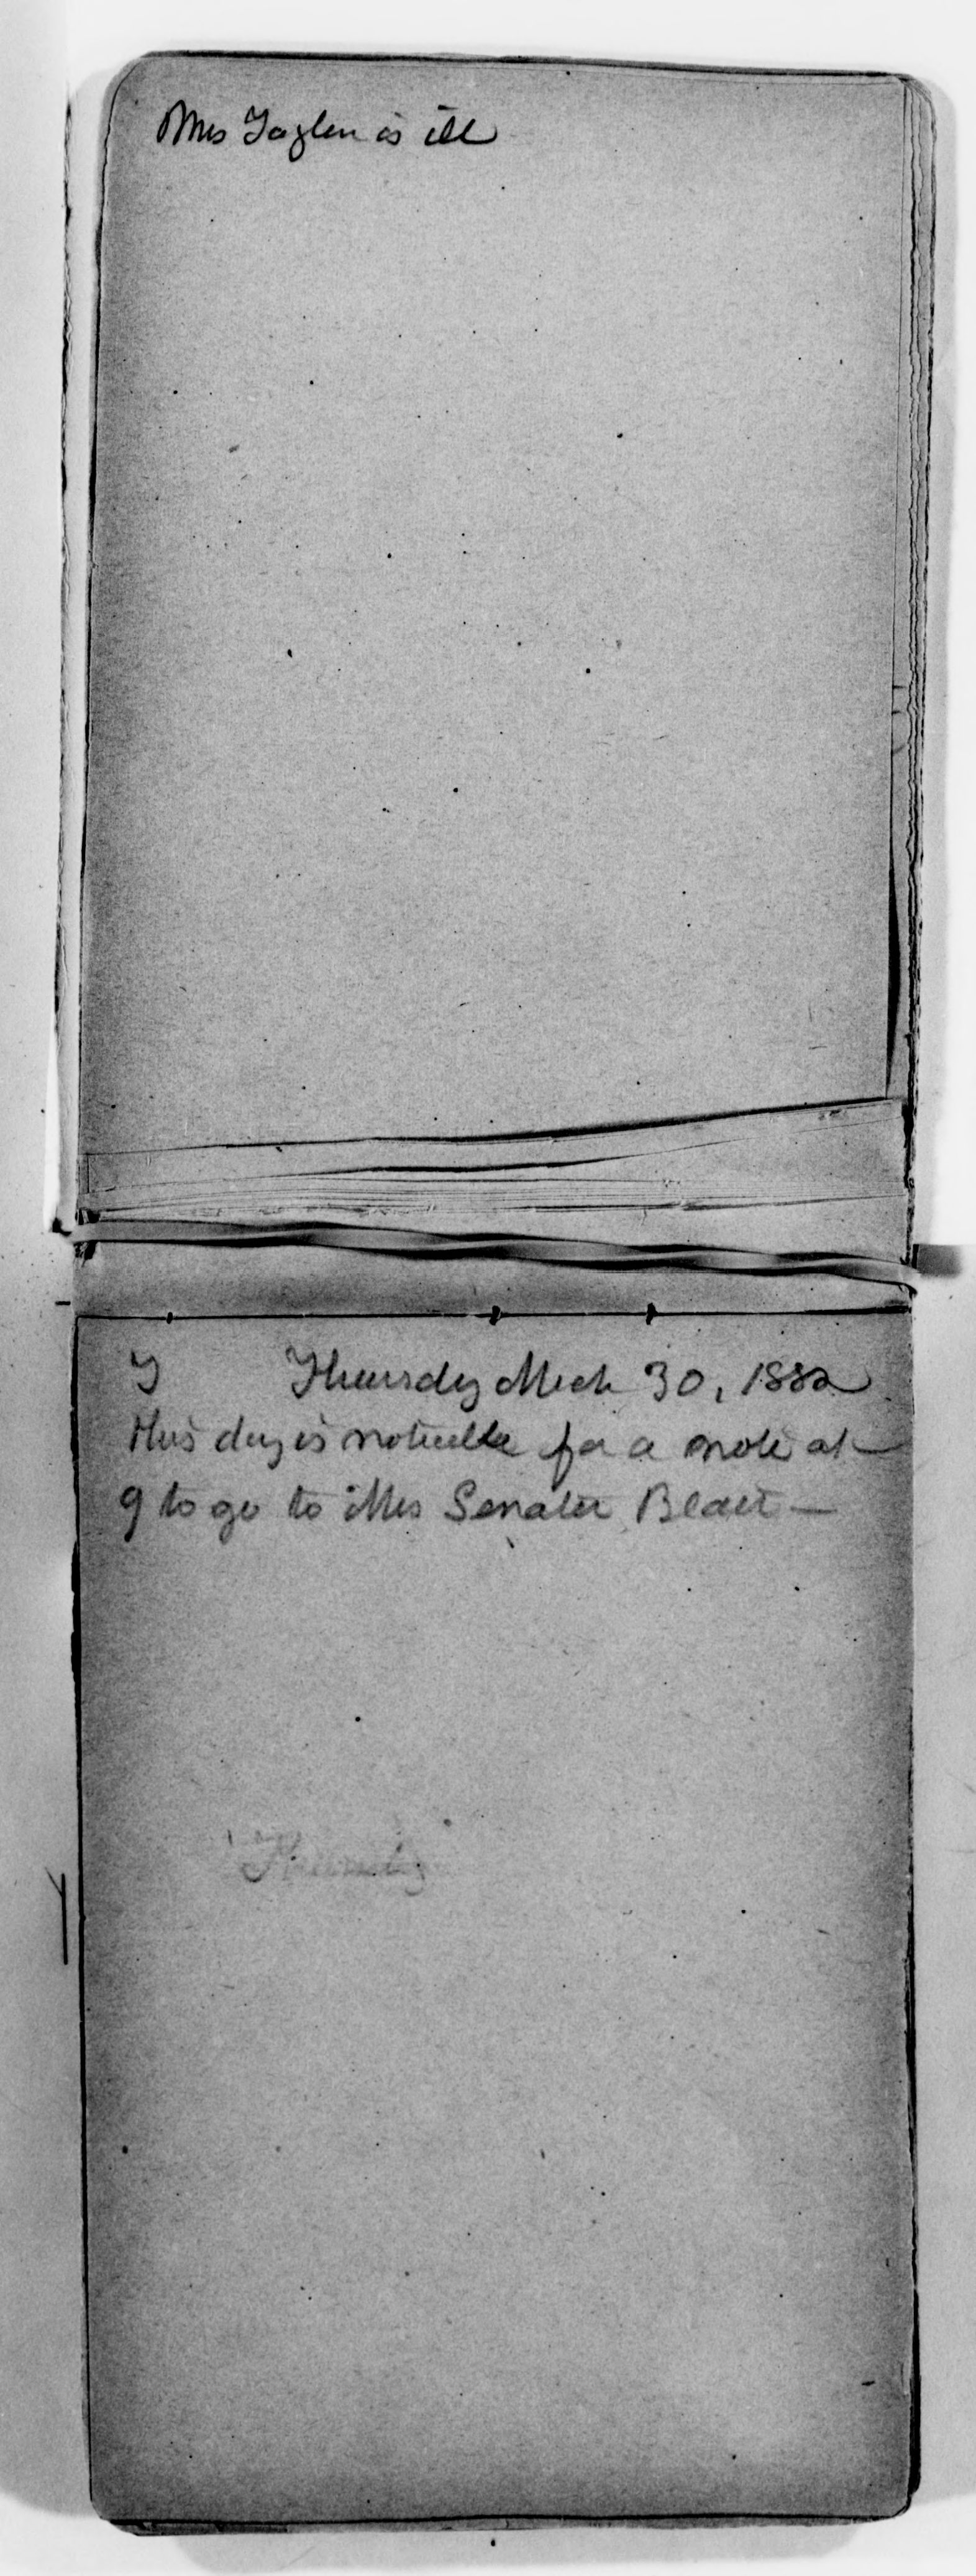 Mrs Taylor is ill
Thursday Mch 30, 1882
this day is noticable for a note at
9 to go to Mrs Senator Blair —
Thursday